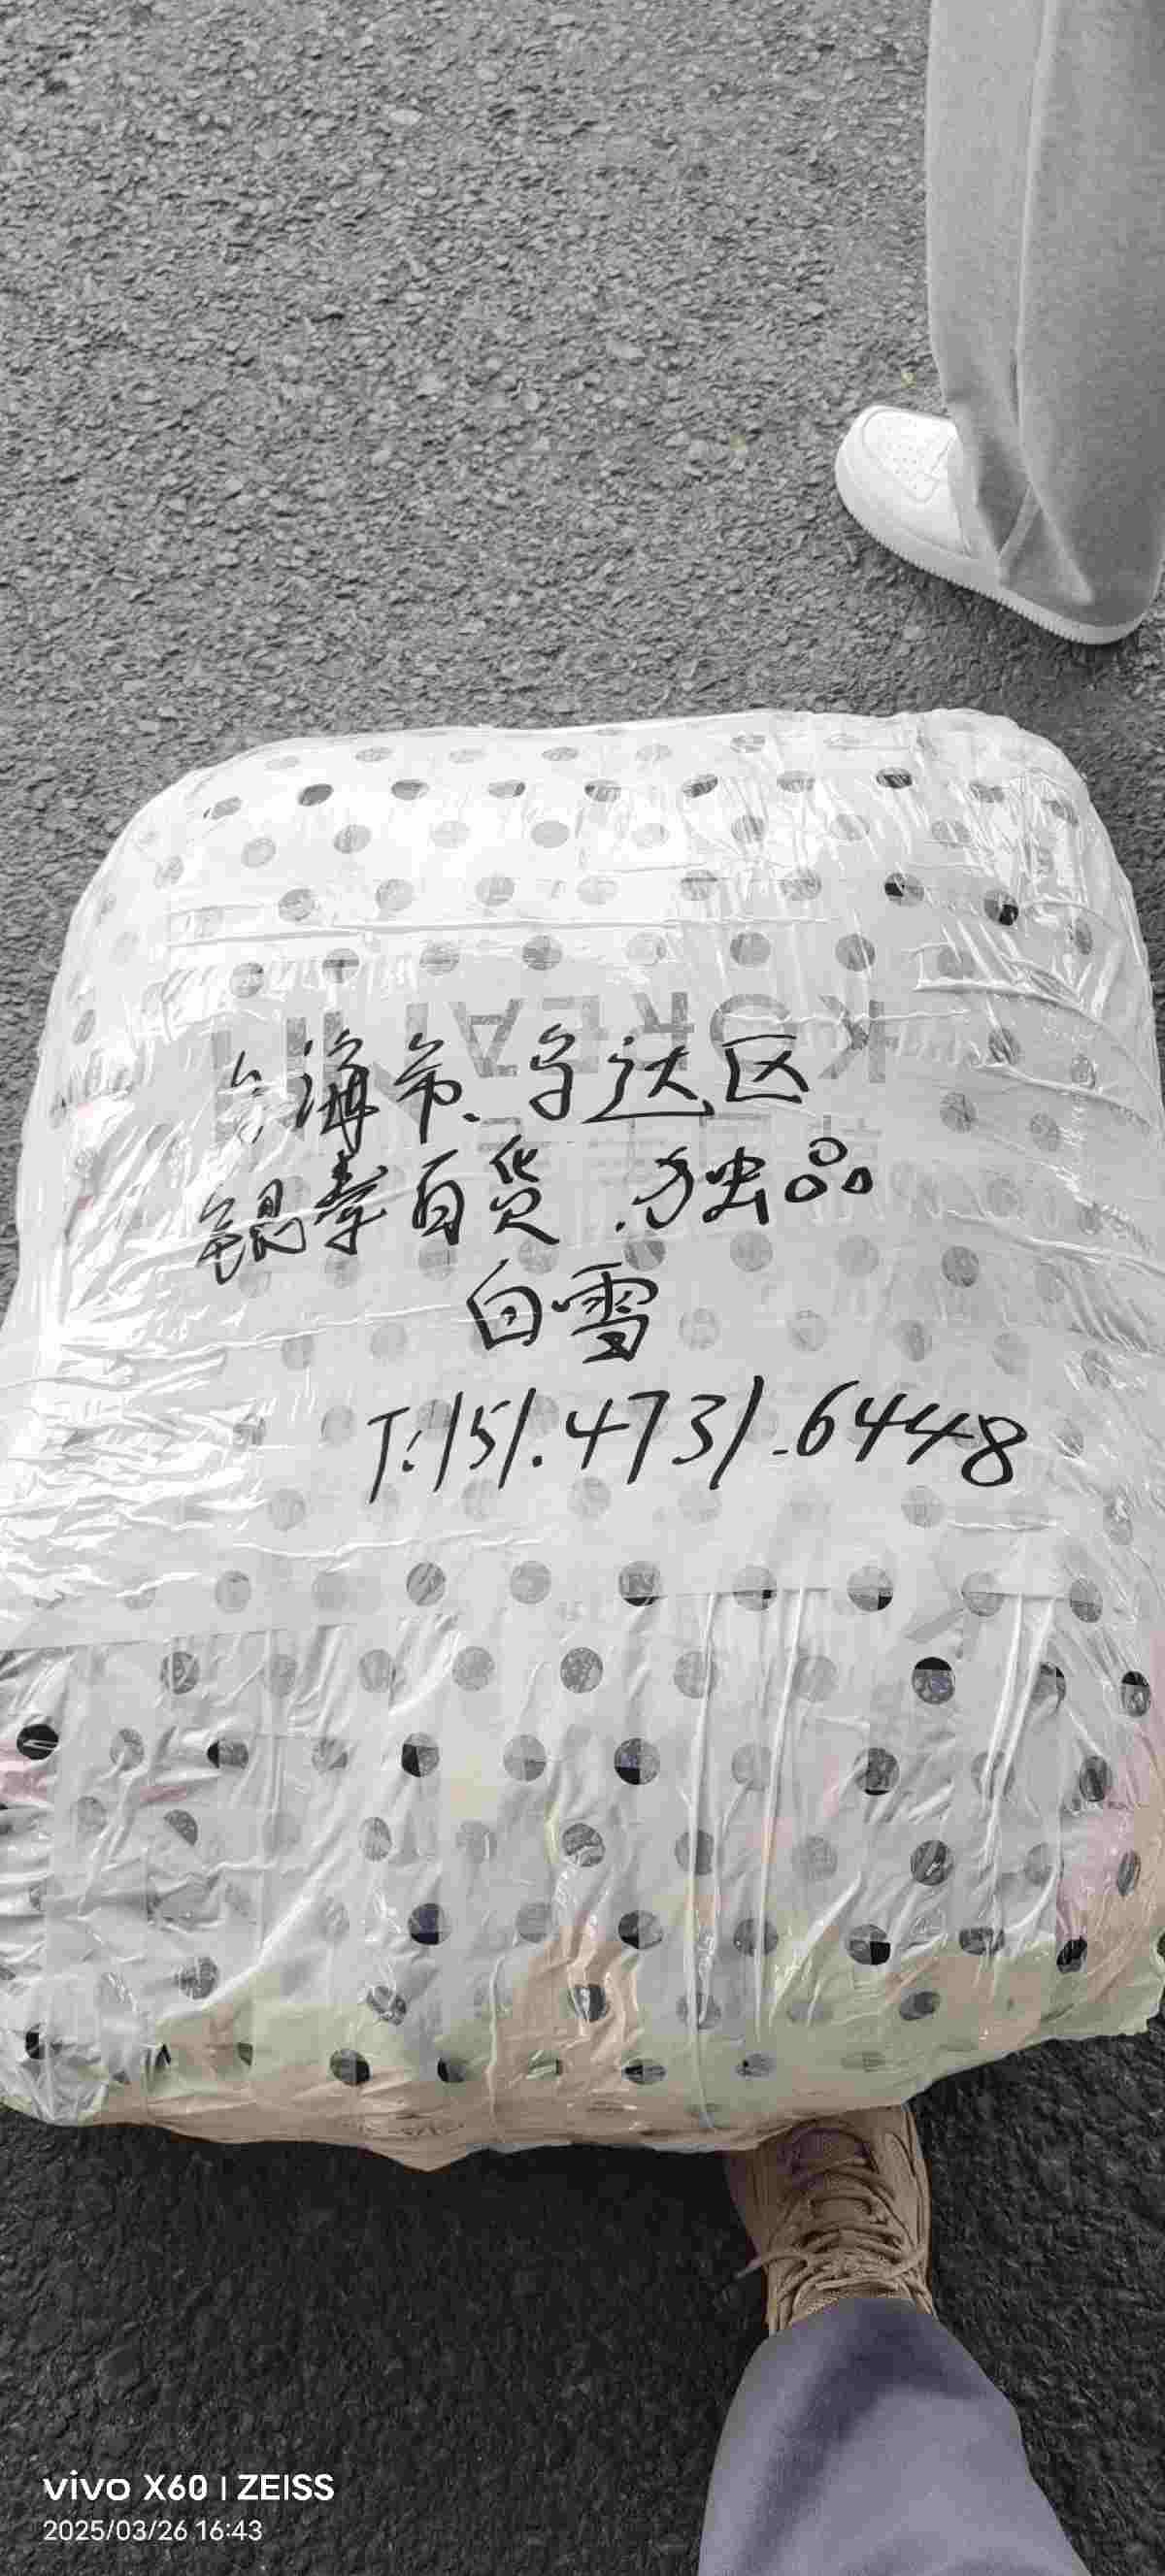 KOREAN
乌海市.乌达区
锡孝百货.力独品
白雪
T:151.4731.6448
vivo X60 | ZEISS
2025/03/26 16:43